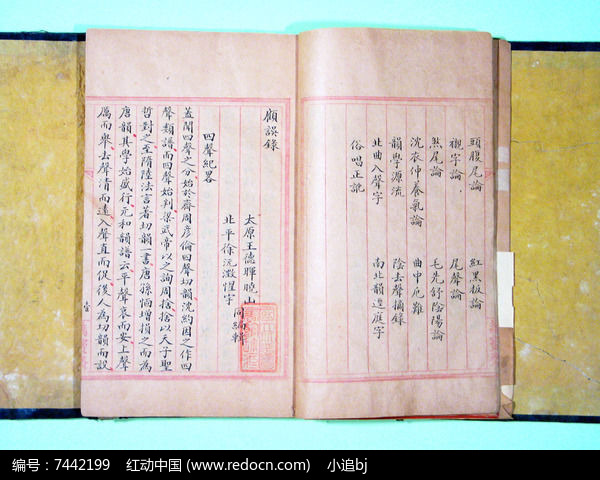 頭腹尾論 紅黑板論
襯字論 尾聲論
煞尾論 毛先舒陰陽論
沈衣仲養氣論 曲中厄難
韻學源流 陰去聲摘錄
北曲入聲字 南北韻逕庭字
俗唱正訛
顧誤錄
太原王德暉曉山
北平徐沅澂惺宇 同編輯
四聲紀畧
蓋聞四聲之分始於齋周彥倫四聲切韻沈約因之作四
聲類譜而四聲始判梁武帝以之詢周捨捨以天子聖
哲對之至隋陸法言著切韻一書唐孫愐增損之而為
唐韻其學始盛行元和韻譜云平聲哀而安上聲
厲而舉去聲清而遠入聲直而促後人為切韻而設
编号：7442199 红动中国 (www.redocn.com) 小追bj